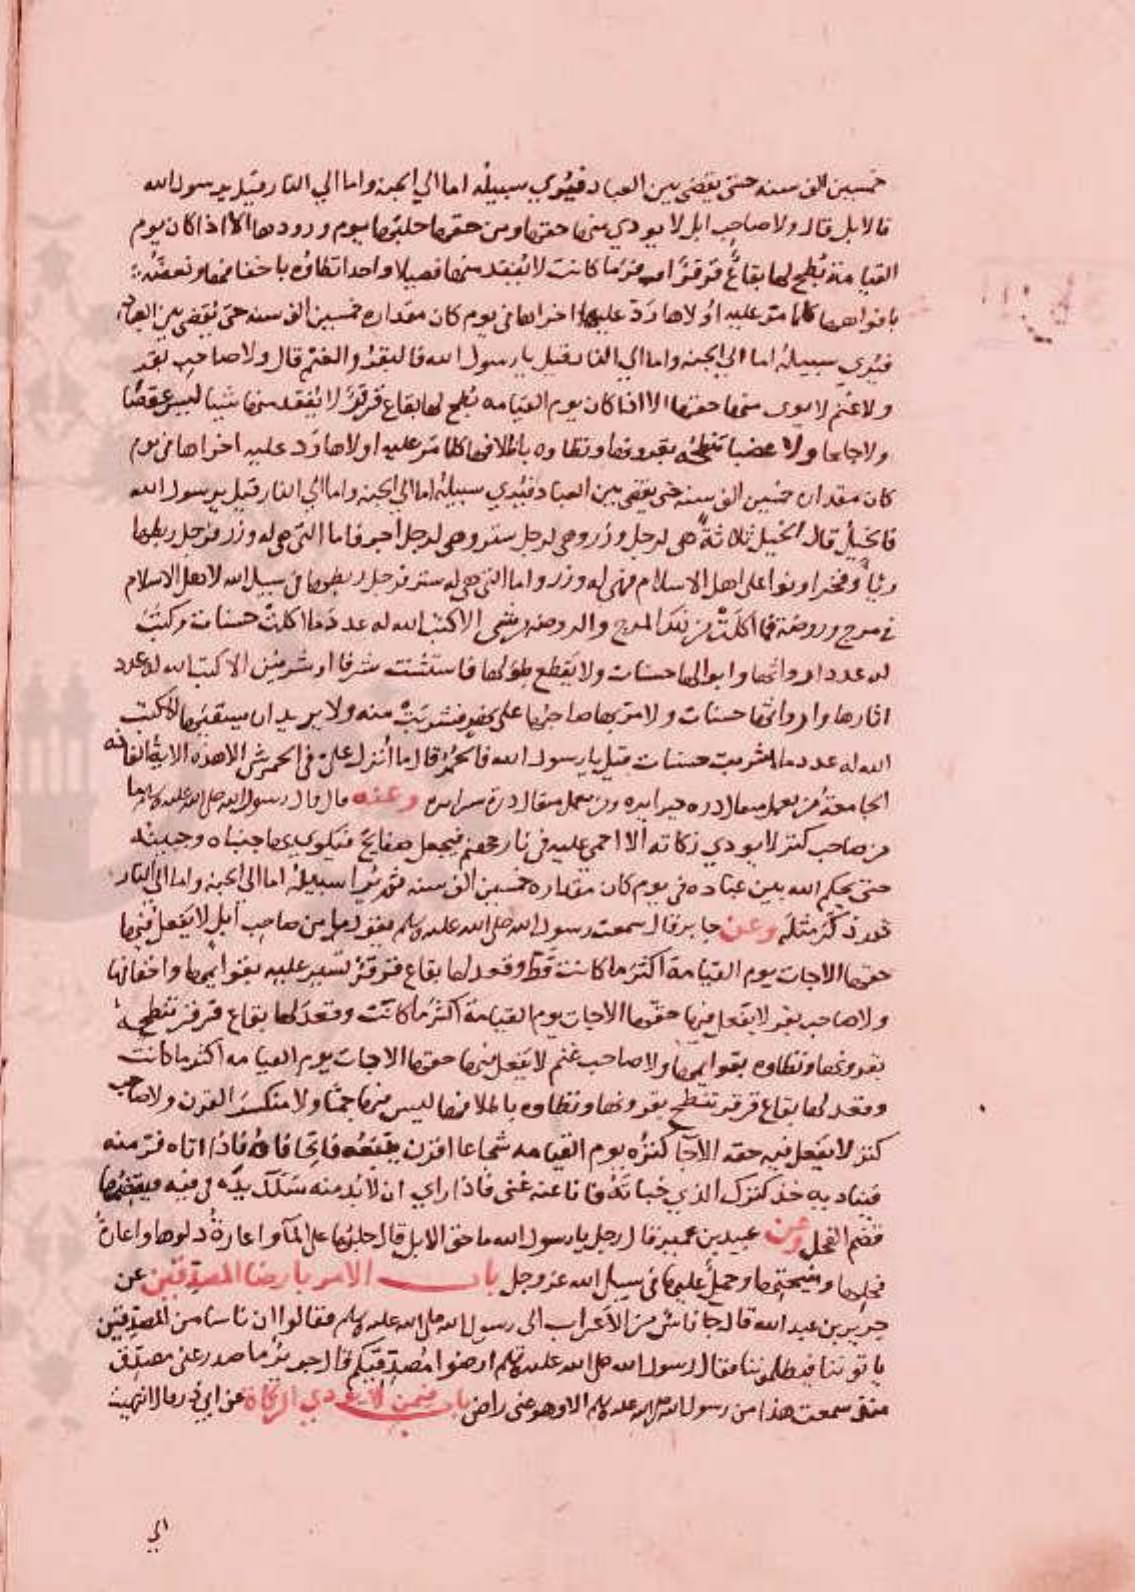 خمسين الف سنه حتى يقضى بين العباد فيري سبيله اما الي الجنه واما الي النار قيل يرسول الله
فالابل قال ولا صاحب ابل لا يودي منها حقها ومن حقها حلبها يوم ورودها الا اذا كان يوم
القيامة بُطح لها بقاع قرقر اوفر ما كانت لا يفقد منها فصيلا واحدا تطاؤه باخفافها وتعضُّه
بافواهها كلما مر عليه اولاها رد عليه اخراها في يوم كان مقداره خمسين الف سنه حتى يقضى بين العباد
فيري سبيله اما الي الجنه واما الي النار قيل يارسول الله فالبقر والغنم قال ولا صاحب بقر
ولا غنم لا يودي منها حقها الا اذا كان يوم القيامه بطح لها بقاع قرقر لا يفقد منها شيا ليس عقصا
ولا جلحا ولا عضبا تنطحه بقرونها وتطاوه باظلافها كلما مر عليه اولاها رد عليه اخراها في يوم
كان مقداره خمسين الف سنه حتى يقضى بين العباد فيري سبيله اما الي الجنه واما الي النار قيل يرسول الله
فالخيل قال الخيل ثلاثة هي لرجل وزر وهي لرجل ستر وهي لرجل اجر فاما التي هي له وزر فرجل ربطها
رياً وفخرا ونوا على اهل الاسلام فهي له وزر واما التي هي له ستر فرجل ربطها في سبيل الله لاهل الاسلام
في مرج وروضه فما اكلت من ذلك المرج والروضه من شي الا كتب الله له عدد ما اكلت حسنات وكتب
له عدد ارواثها وابوالها حسنات ولا يقطع طولها فاستنت شرفا او شرفين الا كتب الله له عدد
اثارها وارواثها حسنات ولا مر بها صاحبها على نهر فشربت منه ولا يريد ان يسقيها الا كتب
الله له عدد ما شربت حسنات قيل يارسول الله فالحمُر قال ما انزل علي في الحمر شي الا هذه الاية الفاذه
الجامعة من يعمل مثقال ذره خيرا يره ومن يعمل مثقال ذرة شرا يره وعنه قال قال رسول الله صلى الله عليه وسلم ما
من صاحب كنز لا يودي زكاته الا احمي عليه في نار جهنم فيجعل صفايح فيكوي بها جنباه وجبينه
حتى يحكم الله بين عباده في يوم كان مقداره خمسين الف سنه ثم يرا سبيله اما الي الجنه واما الي النار
ثم ذكر مثله وعن جابر قال سمعت رسول الله صلى الله عليه وسلم يقول ما من صاحب ابل لا يفعل فيها
حقها الا جات يوم القيامة اكثر ما كانت قط وقعد لها بقاع قرقر تسير عليه بقوايمها واخفافها
ولا صاحب بقر لا يفعل فيها حقها الا جات يوم القيامة اكثر ما كانت وقعد لها بقاع قرقر تنطحه
بقرونها وتطاوه بقوايمها ولا صاحب غنم لا يفعل فيها حقها الا جات يوم القيامه اكثر ما كانت
وقعد لها بقاع قرقر تنطحه بقرونها وتطاوه باظلافها ليس فيها جما ولا منكسر القرن ولا صاحب
كنز لا يفعل فيه حقه الا جا كنزه يوم القيامه شجاعا اقرن يتبعه فاتحا فاه فاذا اتاه فر منه
فيناديه خذ كنزك الذي خباته فانا عنه غنى فاذا راي ان لا بد منه سلك يده في فيه فيقضمها
قضم الفحل وعن عبيد بن عمير قال رجل يارسول الله ما حق الابل قال حلبها على الما واعارة دلوها واعارة
فحلها ومنيحتها وحمل عليها في سبيل الله عز وجل باب الامر بارضا المصدقين عن
جرير بن عبد الله قال جا ناس من الاعراب الى رسول الله صلى الله عليه وسلم فقالوا ان ناسا من المصدقين
ياتوننا فيظلموننا فقال رسول الله صلى الله عليه وسلم ارضوا مصدقيكم قال جرير ما صدر عني مصدق
منذ سمعت هذا من رسول الله صلى الله عليه وسلم الا وهو عني راض باب فيمن لا يودي الزكاة عن ابي ذر قال انتهيت
الي